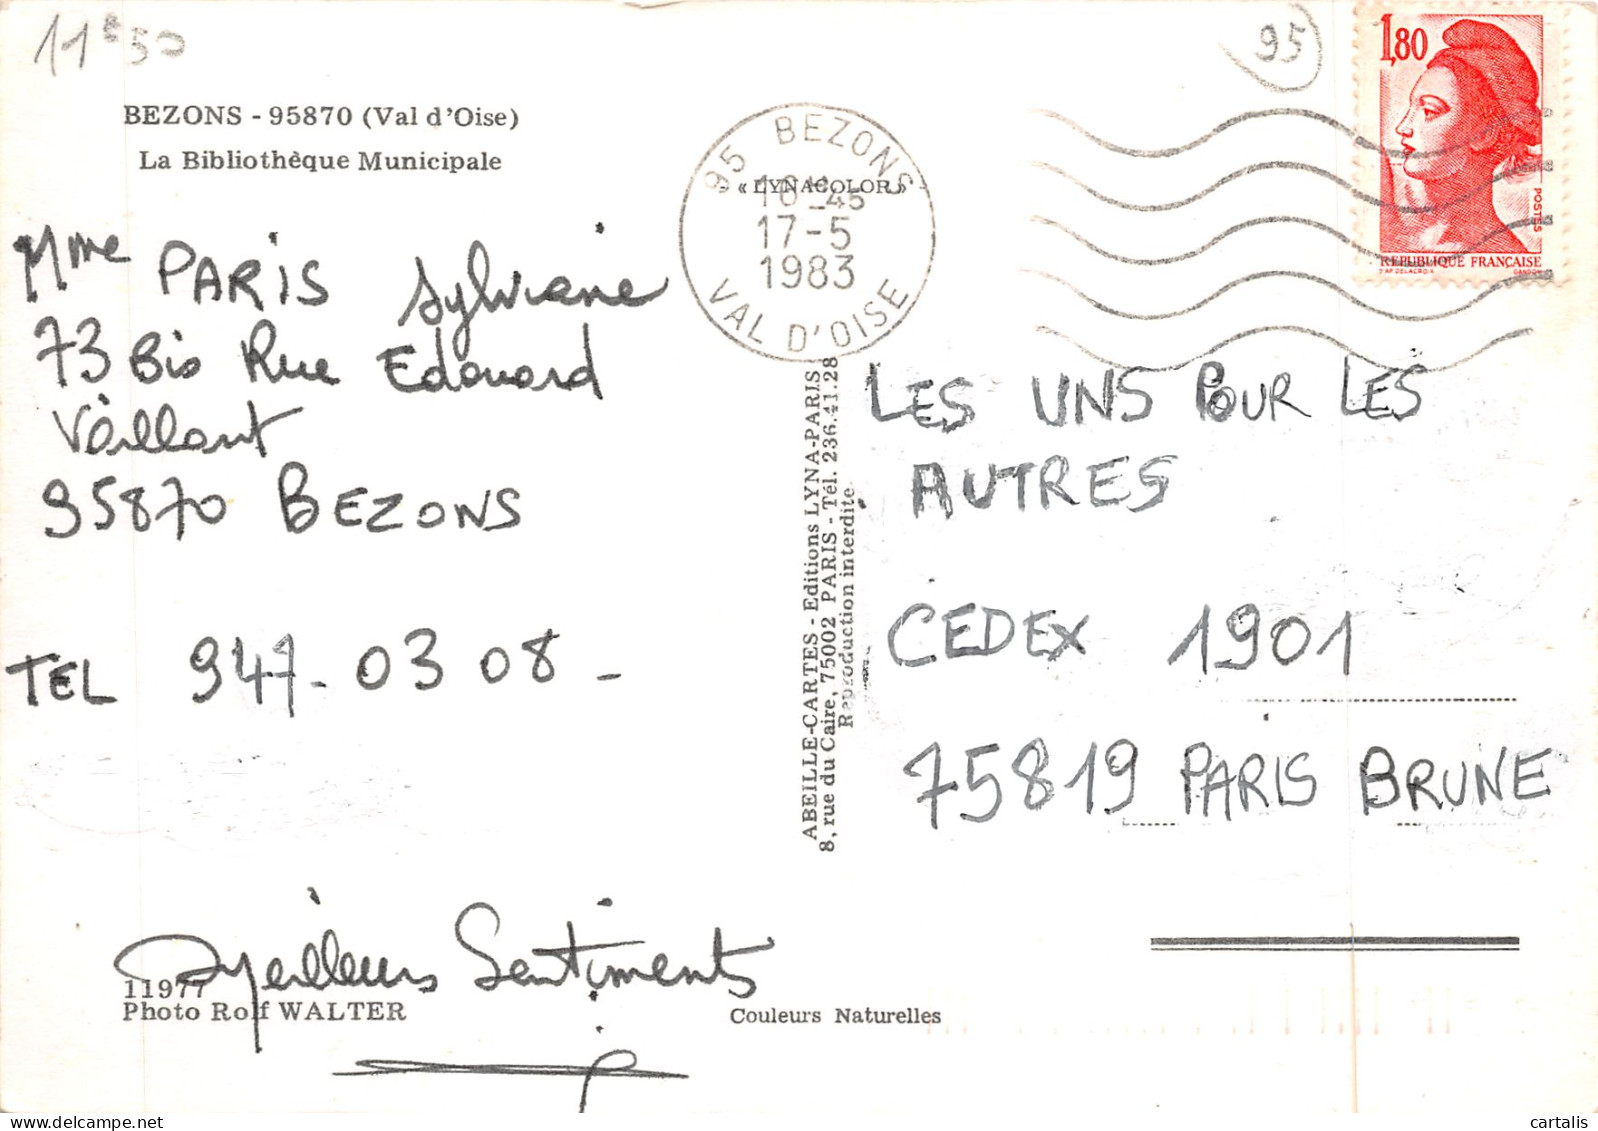 11F50
95
BEZONS - 95870 (Val d'Oise)
La Bibliothèque Municipale
95 BEZONS
« LYNACOLOR »
16H45
17-5
1983
VAL D'OISE
1,80
POSTES
REPUBLIQUE FRANÇAISE
D'AP. DELACROIX GANDON
Mme PARIS Sylviane
73 Bis Rue Edouard
Vaillant
95870 BEZONS
TEL 947-03 08 -
Meilleurs Sentiments
11977
Photo Rolf WALTER
Couleurs Naturelles
ABEILLE-CARTES - Editions LYNA-PARIS
8, rue du Caire, 75002 PARIS - Tél. 236.41.28
Reproduction interdite
LES UNS POUR LES
AUTRES
CEDEX 1901
75819 PARIS BRUNE
cartalis